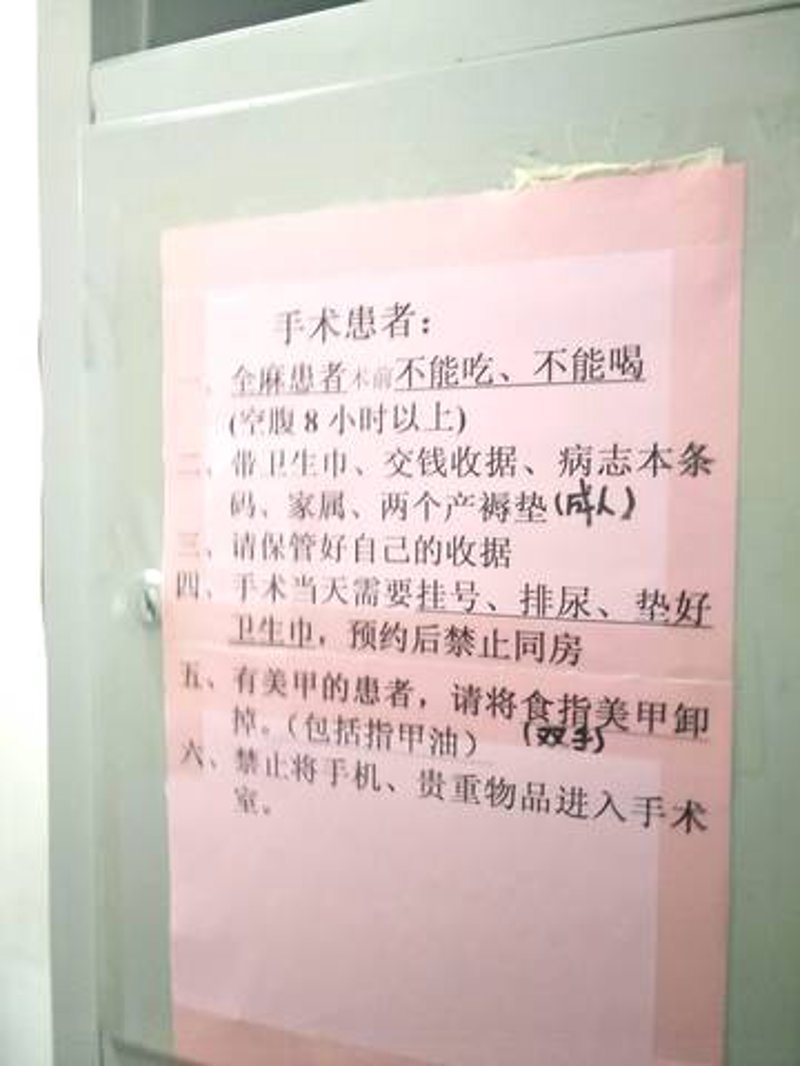 手术患者：
一、全麻患者术前不能吃、不能喝
(空腹 8 小时以上)
二、带卫生巾、交钱收据、病志本条
码、家属、两个产褥垫(成人)
三、请保管好自己的收据
四、手术当天需要挂号、排尿、垫好
卫生巾，预约后禁止同房
五、有美甲的患者，请将食指美甲卸
掉。（包括指甲油）(双手)
六、禁止将手机、贵重物品进入手术
室。